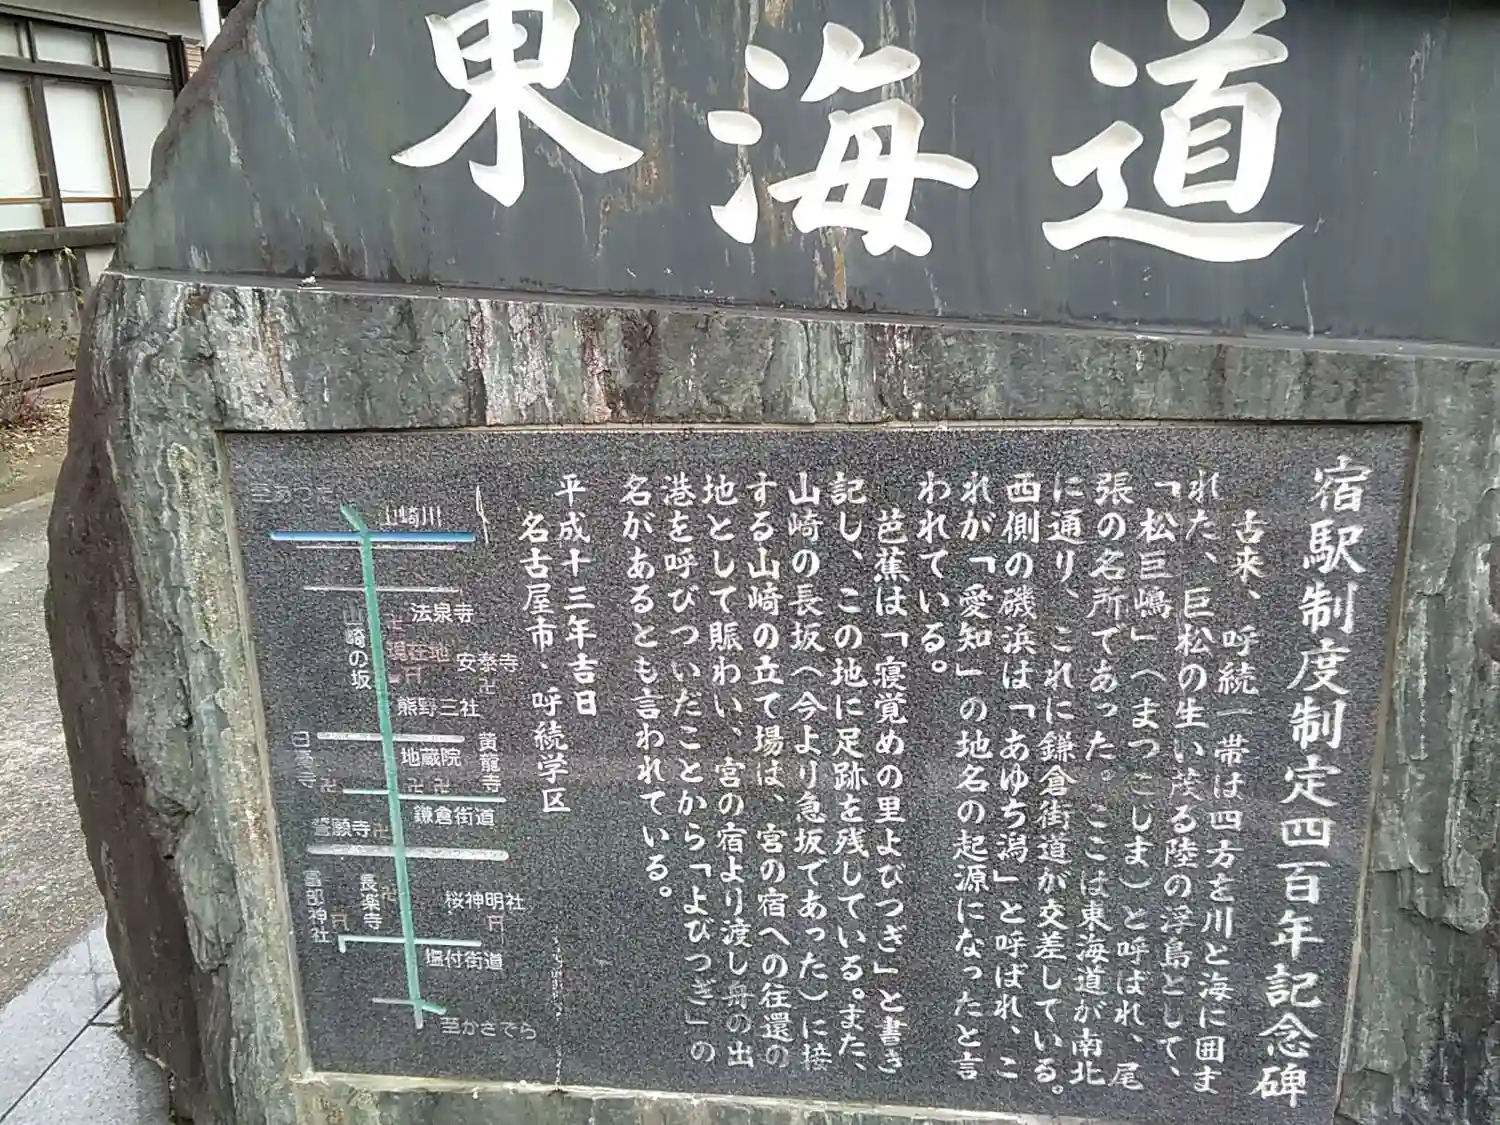 東海道
宿駅制度制定四百年記念碑
古来、呼続一帯は四方を川と海に囲ま
れた、巨松の生い茂る陸の浮島として、
「松巨嶋」(まつこしま)と呼ばれ、尾
張の名所であった。ここは東海道が南北
に通り、これに鎌倉街道が交差している。
西側の磯浜は「あゆち潟」と呼ばれ、こ
れが「愛知」の地名の起源になったと言
われている。
芭蕉は「寝覚めの里よびつぎ」と書き
記し、この地に足跡を残している。また、
山崎の長坂(今より急坂であった)に接
する山崎の立て場は、宮の宿への往還の
地として賑わい、宮の宿より渡し舟の出
港を呼びついだことから「よびつぎ」の
名があるとも言われている。
平成十三年吉日
名古屋市・呼続学区
至あつた
山崎川
法泉寺
山崎の坂
現在地
安泰寺
卍
熊野三社
黄龍寺
地蔵院
卍
卍
卍
鎌倉街道
誓願寺
卍
長楽寺
卍
桜神明社
富部神社
塩付街道
至かさでら